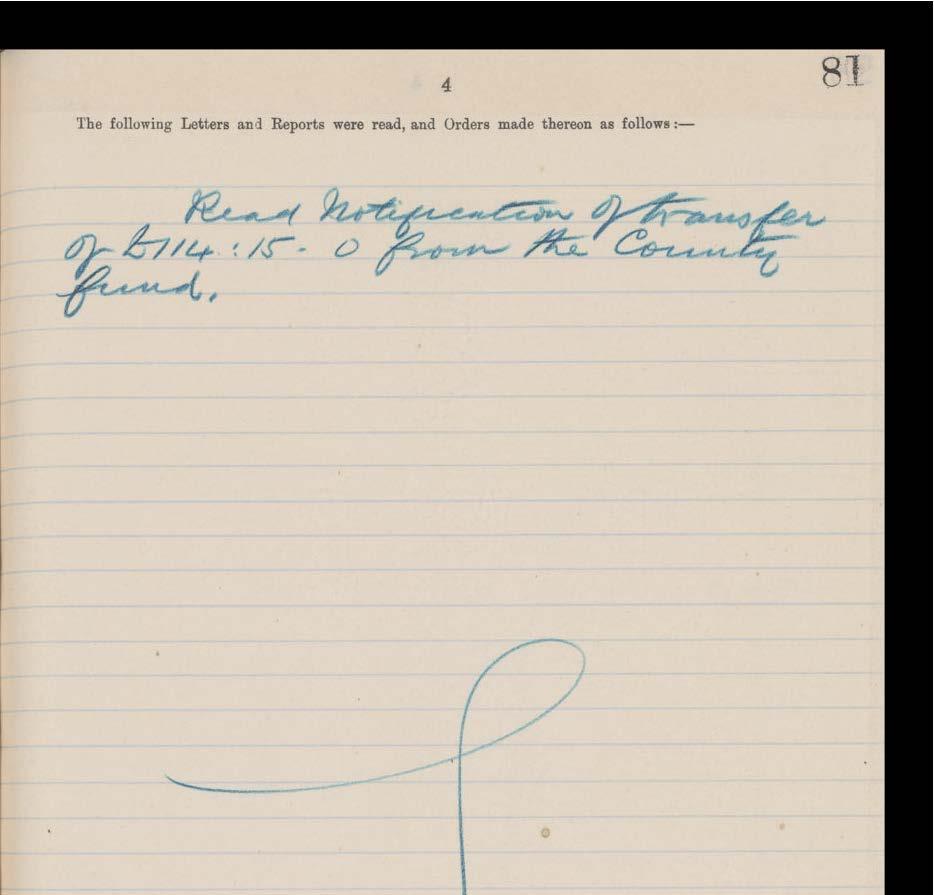 4
81
The following Letters and Reports were read, and Orders made thereon as follows :—
Read Notification of transfer
of £114 : 15 - 0 from the County
fund.